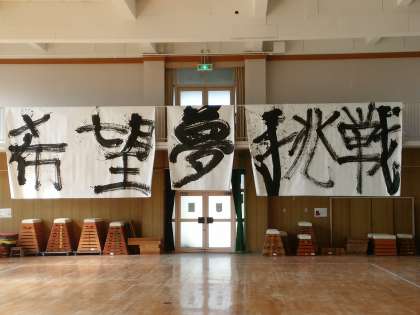 希望 夢 挑戦